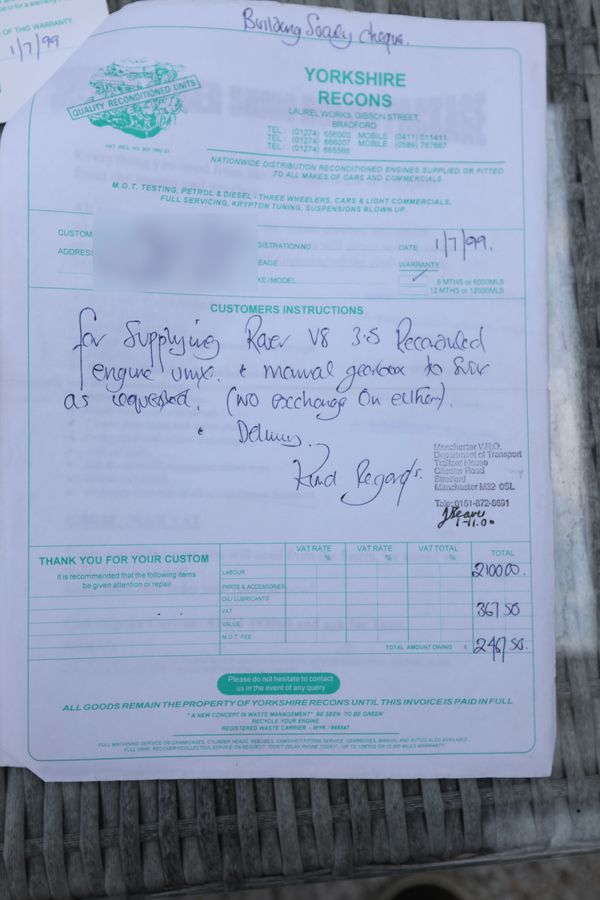 OF THIS WARRANTY
1/7/99
Building Society cheque.
QUALITY RECONDITIONED UNITS
YORKSHIRE
RECONS
LAUREL WORKS, GIBSON STREET,
BRADFORD
TEL (01274) 656000 MOBILE (0411) 011411
TEL (01274) 666007 MOBILE (0589) 767667
TEL (01274) 665566
NATIONWIDE DISTRIBUTION RECONDITIONED ENGINES SUPPLIED OR FITTED
TO ALL MAKES OF CARS AND COMMERCIALS
M.O.T. TESTING, PETROL & DIESEL - THREE WHEELERS, CARS & LIGHT COMMERCIALS,
FULL SERVICING, KRYPTON TUNING, SUSPENSIONS BLOWN UP
CUSTOM
GISTRATION NO
DATE 1/7/99.
ADDRES
EAGE
WARRANTY
KE/MODEL
6 MTHS or 6000MLS
12 MTHS or 12000MLS
CUSTOMERS INSTRUCTIONS
for Supplying Rover V8 3.5
engine & manual gearbox to
as requested. (no exchange On either).
& Delivery.
Kind Regards.
Manchester V.R.O.
Department of Transport
Trafford House
Chester Road
Stretford
Manchester M32 0SL
Tele: 0161-872-8691
1-11.00
THANK YOU FOR YOUR CUSTOM
It is recommended that the following items
be given attention or repair
VAT RATE % VAT RATE % VAT TOTAL % TOTAL
LABOUR 2100 00.
PARTS & ACCESSORIES
OIL/ LUBRICANTS
VAT 367 50
VALUE
M.O.T. FEE
TOTAL AMOUNT OWING £ 2467 50.
Please do not hesitate to contact
us in the event of any query
ALL GOODS REMAIN THE PROPERTY OF YORKSHIRE RECONS UNTIL THIS INVOICE IS PAID IN FULL
"A NEW CONCEPT IN WASTE MANAGEMENT" BE SEEN TO BE GREEN'
RECYCLE YOUR ENGINE
REGISTERED WASTE CARRIER - WYK /